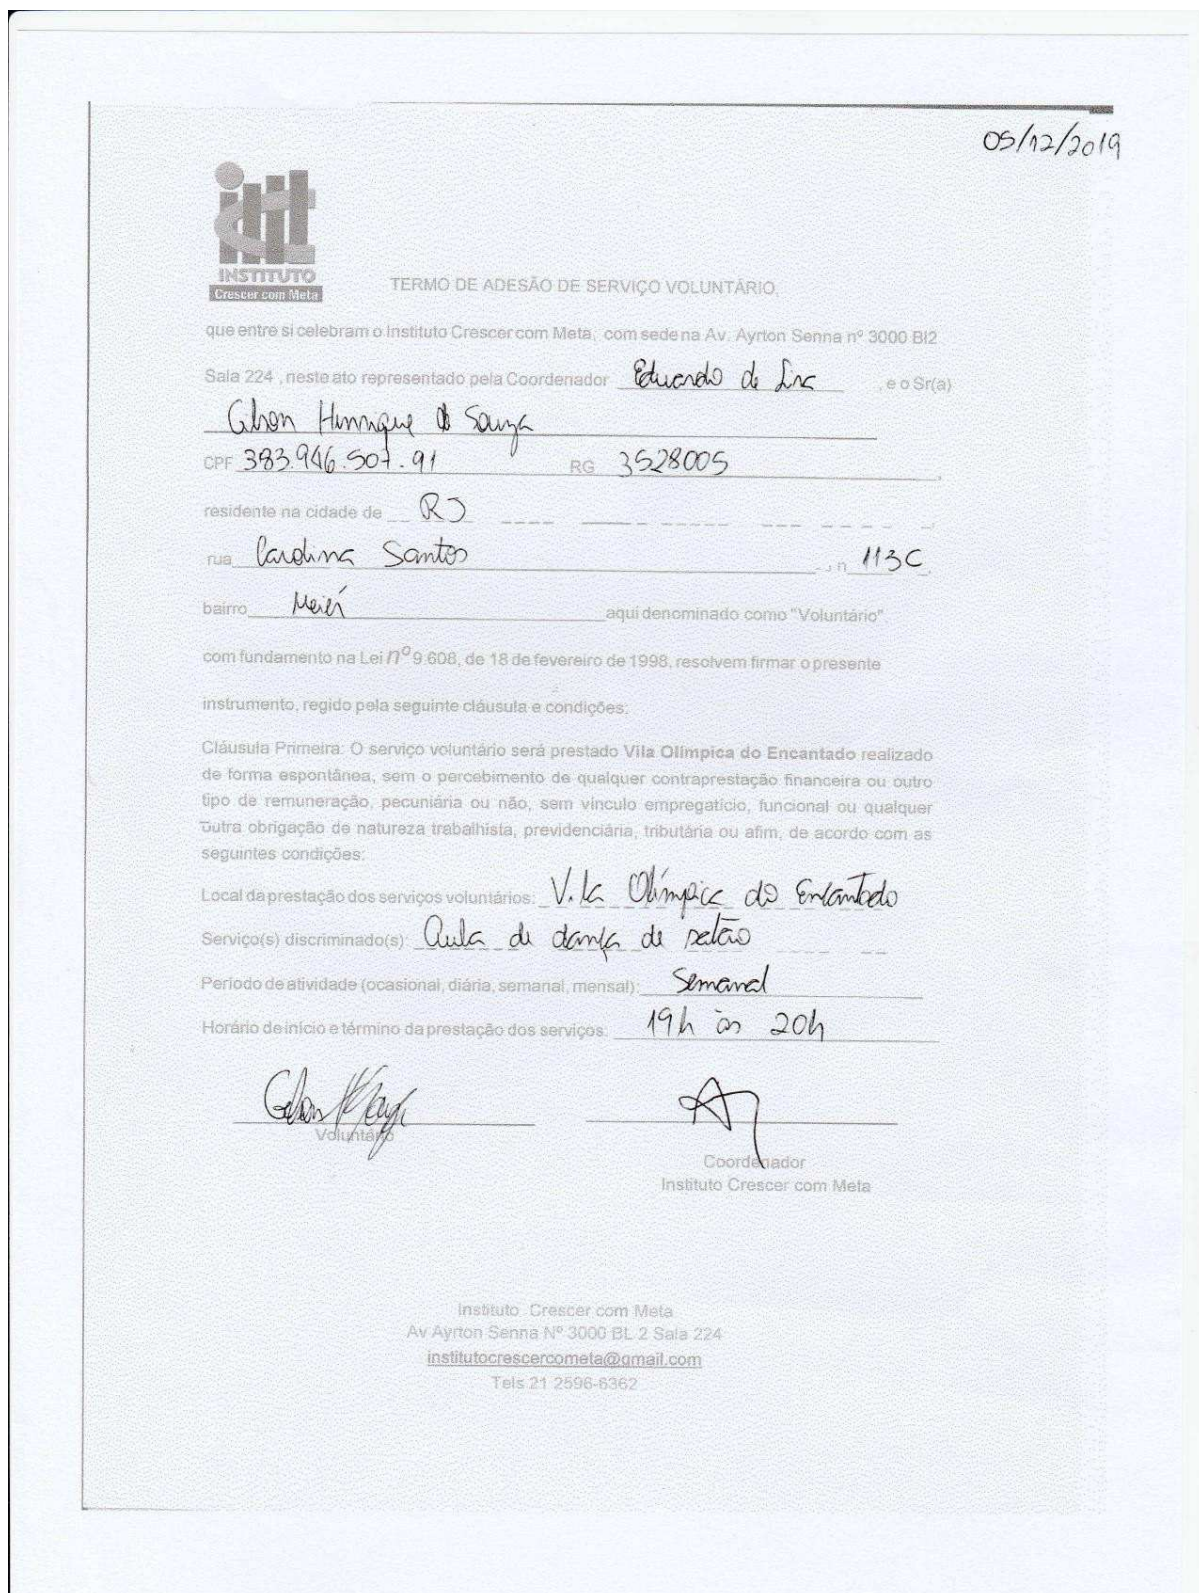 05/12/2019
INSTITUTO
Crescer com Meta
TERMO DE ADESÃO DE SERVIÇO VOLUNTÁRIO,
que entre si celebram o Instituto Crescer com Meta, com sede na Av. Ayrton Senna nº 3000 Bl2
Sala 224 , neste ato representado pela Coordenador Eduardo de , e o Sr(a)
Henrique de Souza
CPF 383.946.507.91 RG 3528005
residente na cidade de RJ
rua Carolina Santos , n 113C
bairro Meier aqui denominado como "Voluntário"
com fundamento na Lei nº 9.608, de 18 de fevereiro de 1998, resolvem firmar o presente
instrumento, regido pela seguinte cláusula e condições:
Cláusula Primeira: O serviço voluntário será prestado Vila Olímpica do Encantado realizado
de forma espontânea, sem o percebimento de qualquer contraprestação financeira ou outro
tipo de remuneração, pecuniária ou não, sem vínculo empregatício, funcional ou qualquer
outra obrigação de natureza trabalhista, previdenciária, tributária ou afim, de acordo com as
seguintes condições:
Local da prestação dos serviços voluntários: Vila Olímpica do Encantado
Serviço(s) discriminado(s): Aula de dança de salão
Período de atividade (ocasional, diária, semanal, mensal): Semanal
Horário de início e término da prestação dos serviços: 19h às 20h
Voluntário
Coordenador
Instituto Crescer com Meta
Instituto Crescer com Meta
Av Ayrton Senna Nº 3000 BL 2 Sala 224
institutocrescercometa@gmail.com
Tels 21 2596-6362